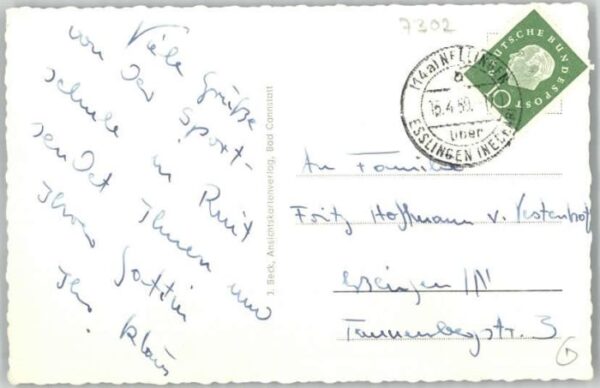 7302
Viele Grüße
von der Sport-
schule in Ruit
sendet Ihnen und
Ihrer Gattin
Ihr Klaus
J. Beck, Ansichtskartenverlag, Bad Cannstatt
DEUTSCHE BUNDESPOST
10
(14a) NELLINGEN
b
15.4.59.
über
ESSLINGEN (NECKAR)
An Familie
Fritz Hoffmann v. Vestenhof
Esslingen/N
Tannenbergstr. 3